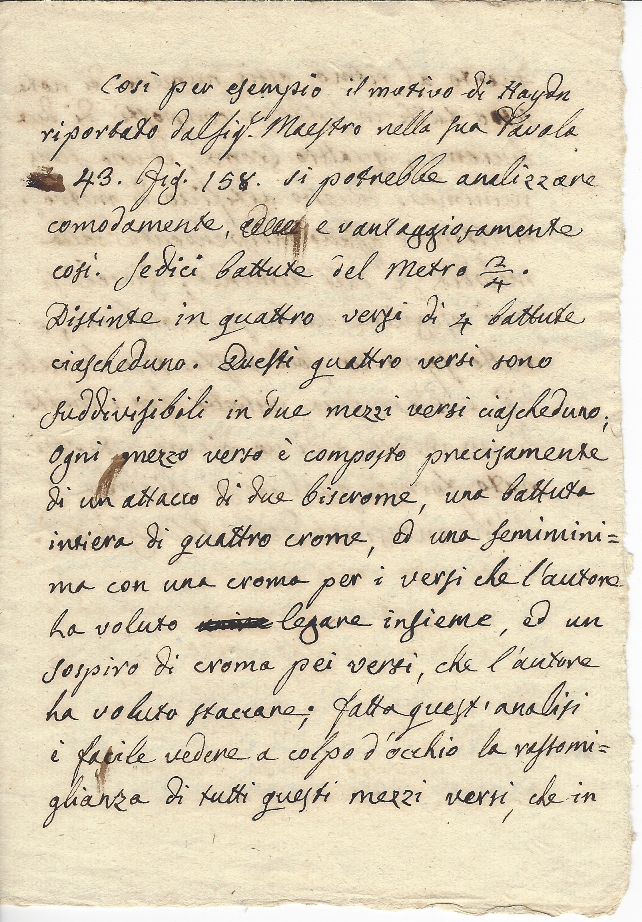 Così per esempio il motivo di Haydn
riportato dal Sig.r Maestro nella sua Tavola
43. Fig. 158. si potrebbe analizzare
comodamente, e vantaggiosamente
così. Sedici battute del Metro 2/4.
Distinte in quattro versi di 4 battute
ciascheduno. Questi quattro versi sono
suddivisibili in due mezzi versi ciascheduno;
Ogni mezzo verso è composto precisamente
di un attacco di due biscrome, una battuta
intiera di quattro crome, ed una semimini=
ma con una croma per i versi che l'autore
ha voluto legare insieme, ed un
sospiro di croma pei versi, che l'autore
ha voluto staccare; fatta quest'analisi
è facile vedere a colpo d'occhio la rassomi=
glianza di tutti questi mezzi versi, che in